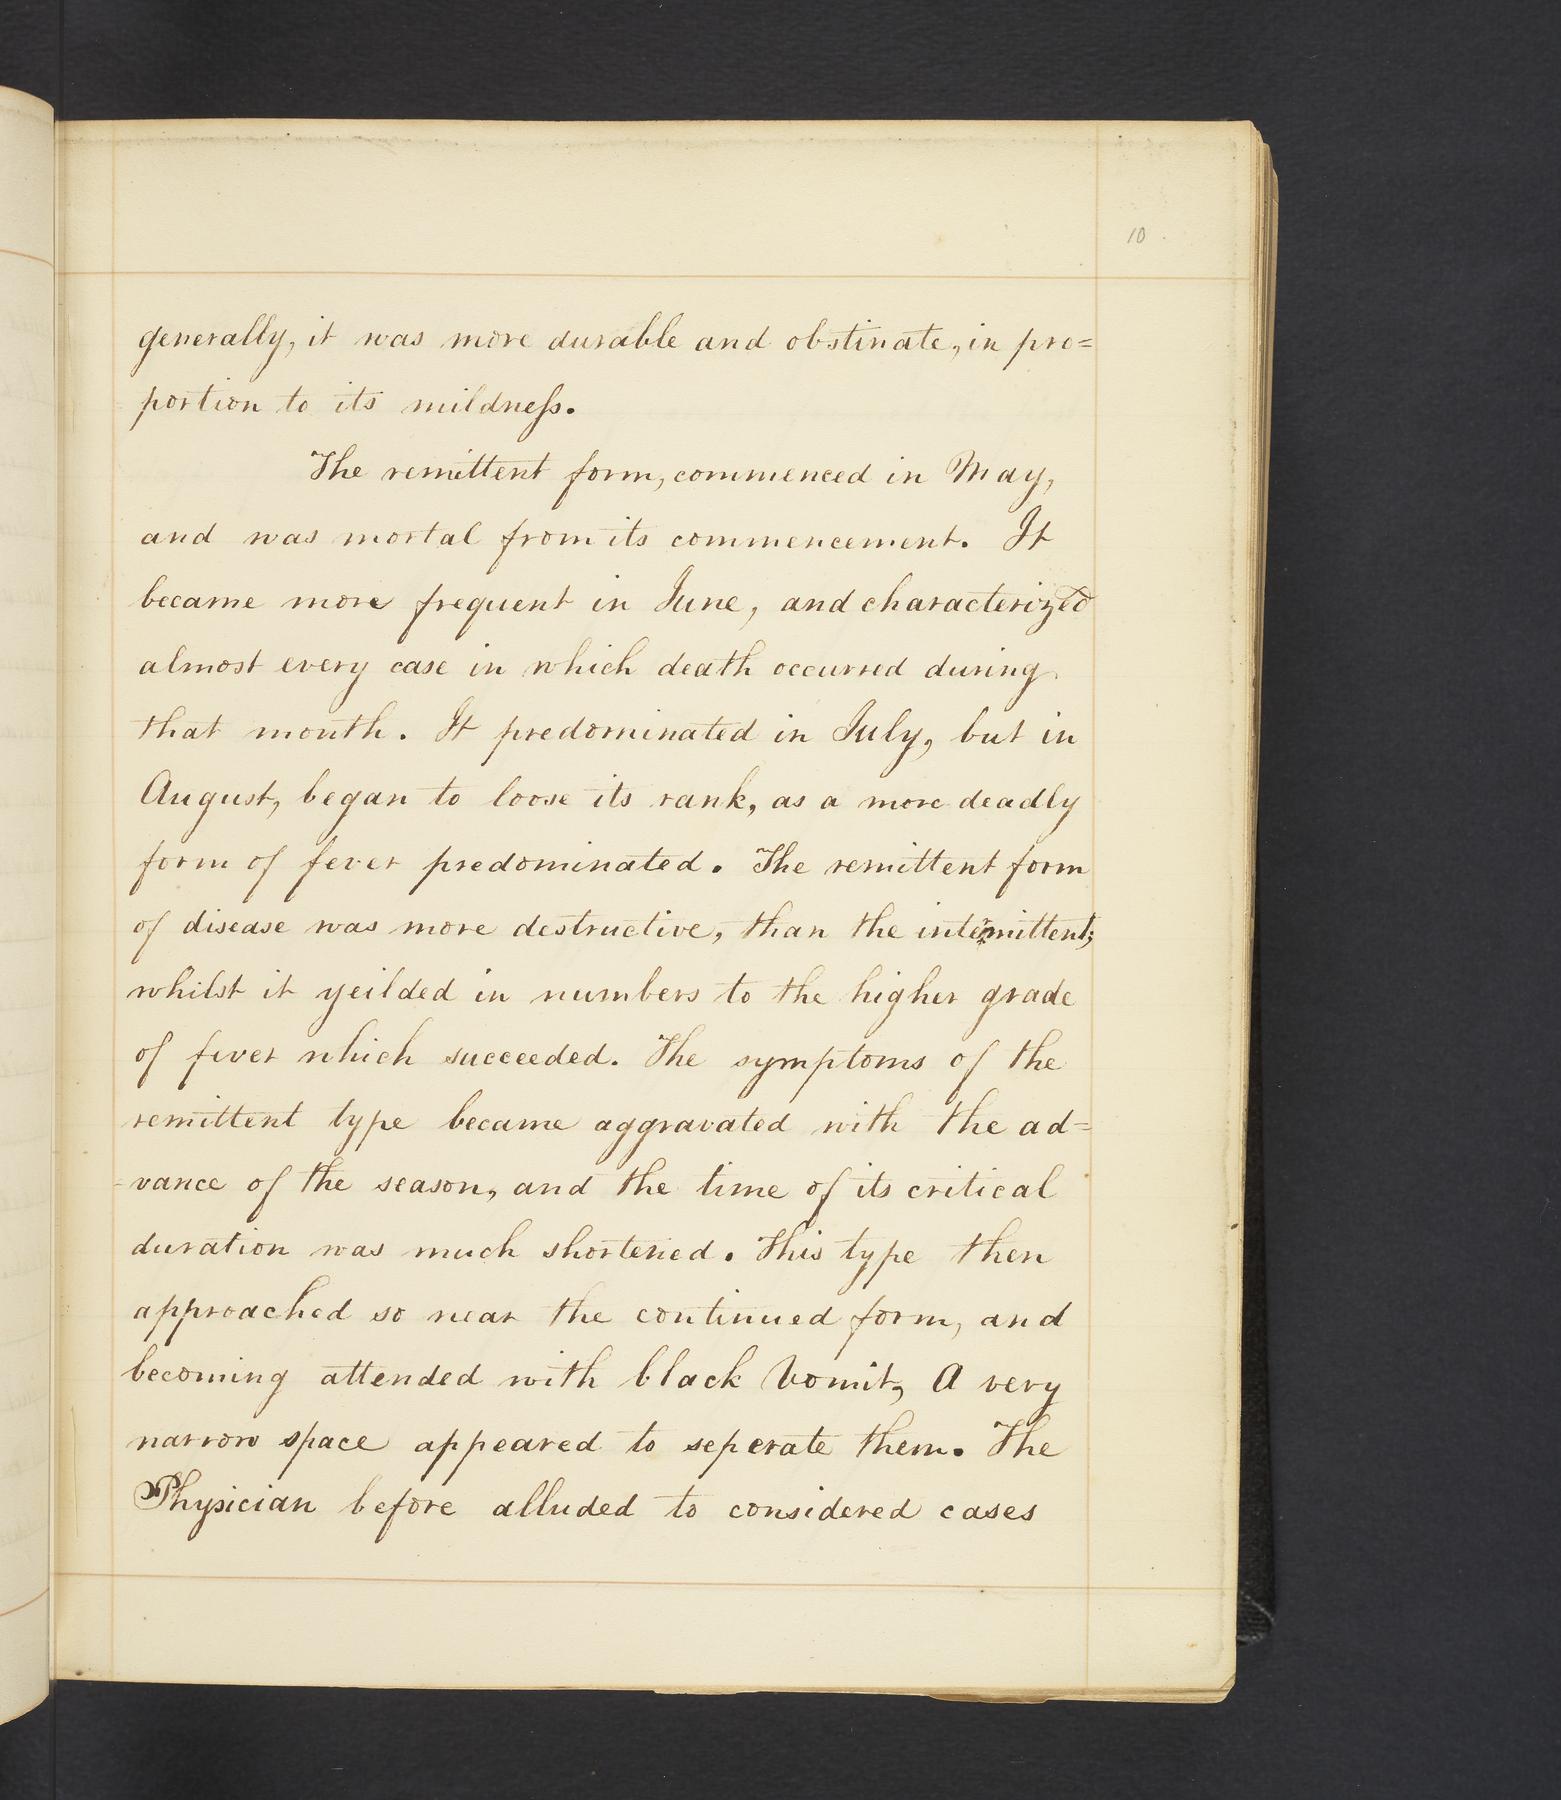 10.
generally, it was more durable and obstinate, in pro=
portion to its mildneſs.
The remittent form, commenced in May,
and was mortal from its commencement. It
became more frequent in June, and characterized
almost every case in which death occurred during
that month. It predominated in July, but in
August, began to loose its rank, as a more deadly
form of fever predominated. The remittent form
of disease was more destructive, than the intermittent;
whilst it yeilded in numbers to the higher grade
of fever which succeeded. The symptoms of the
remittent type became aggravated with the ad=
-vance of the season, and the time of its critical
duration was much shortened. This type then
approached so near the continued form, and
becoming attended with black vomit, A very
narrow space appeared to seperate them. The
Physician before alluded to considered cases